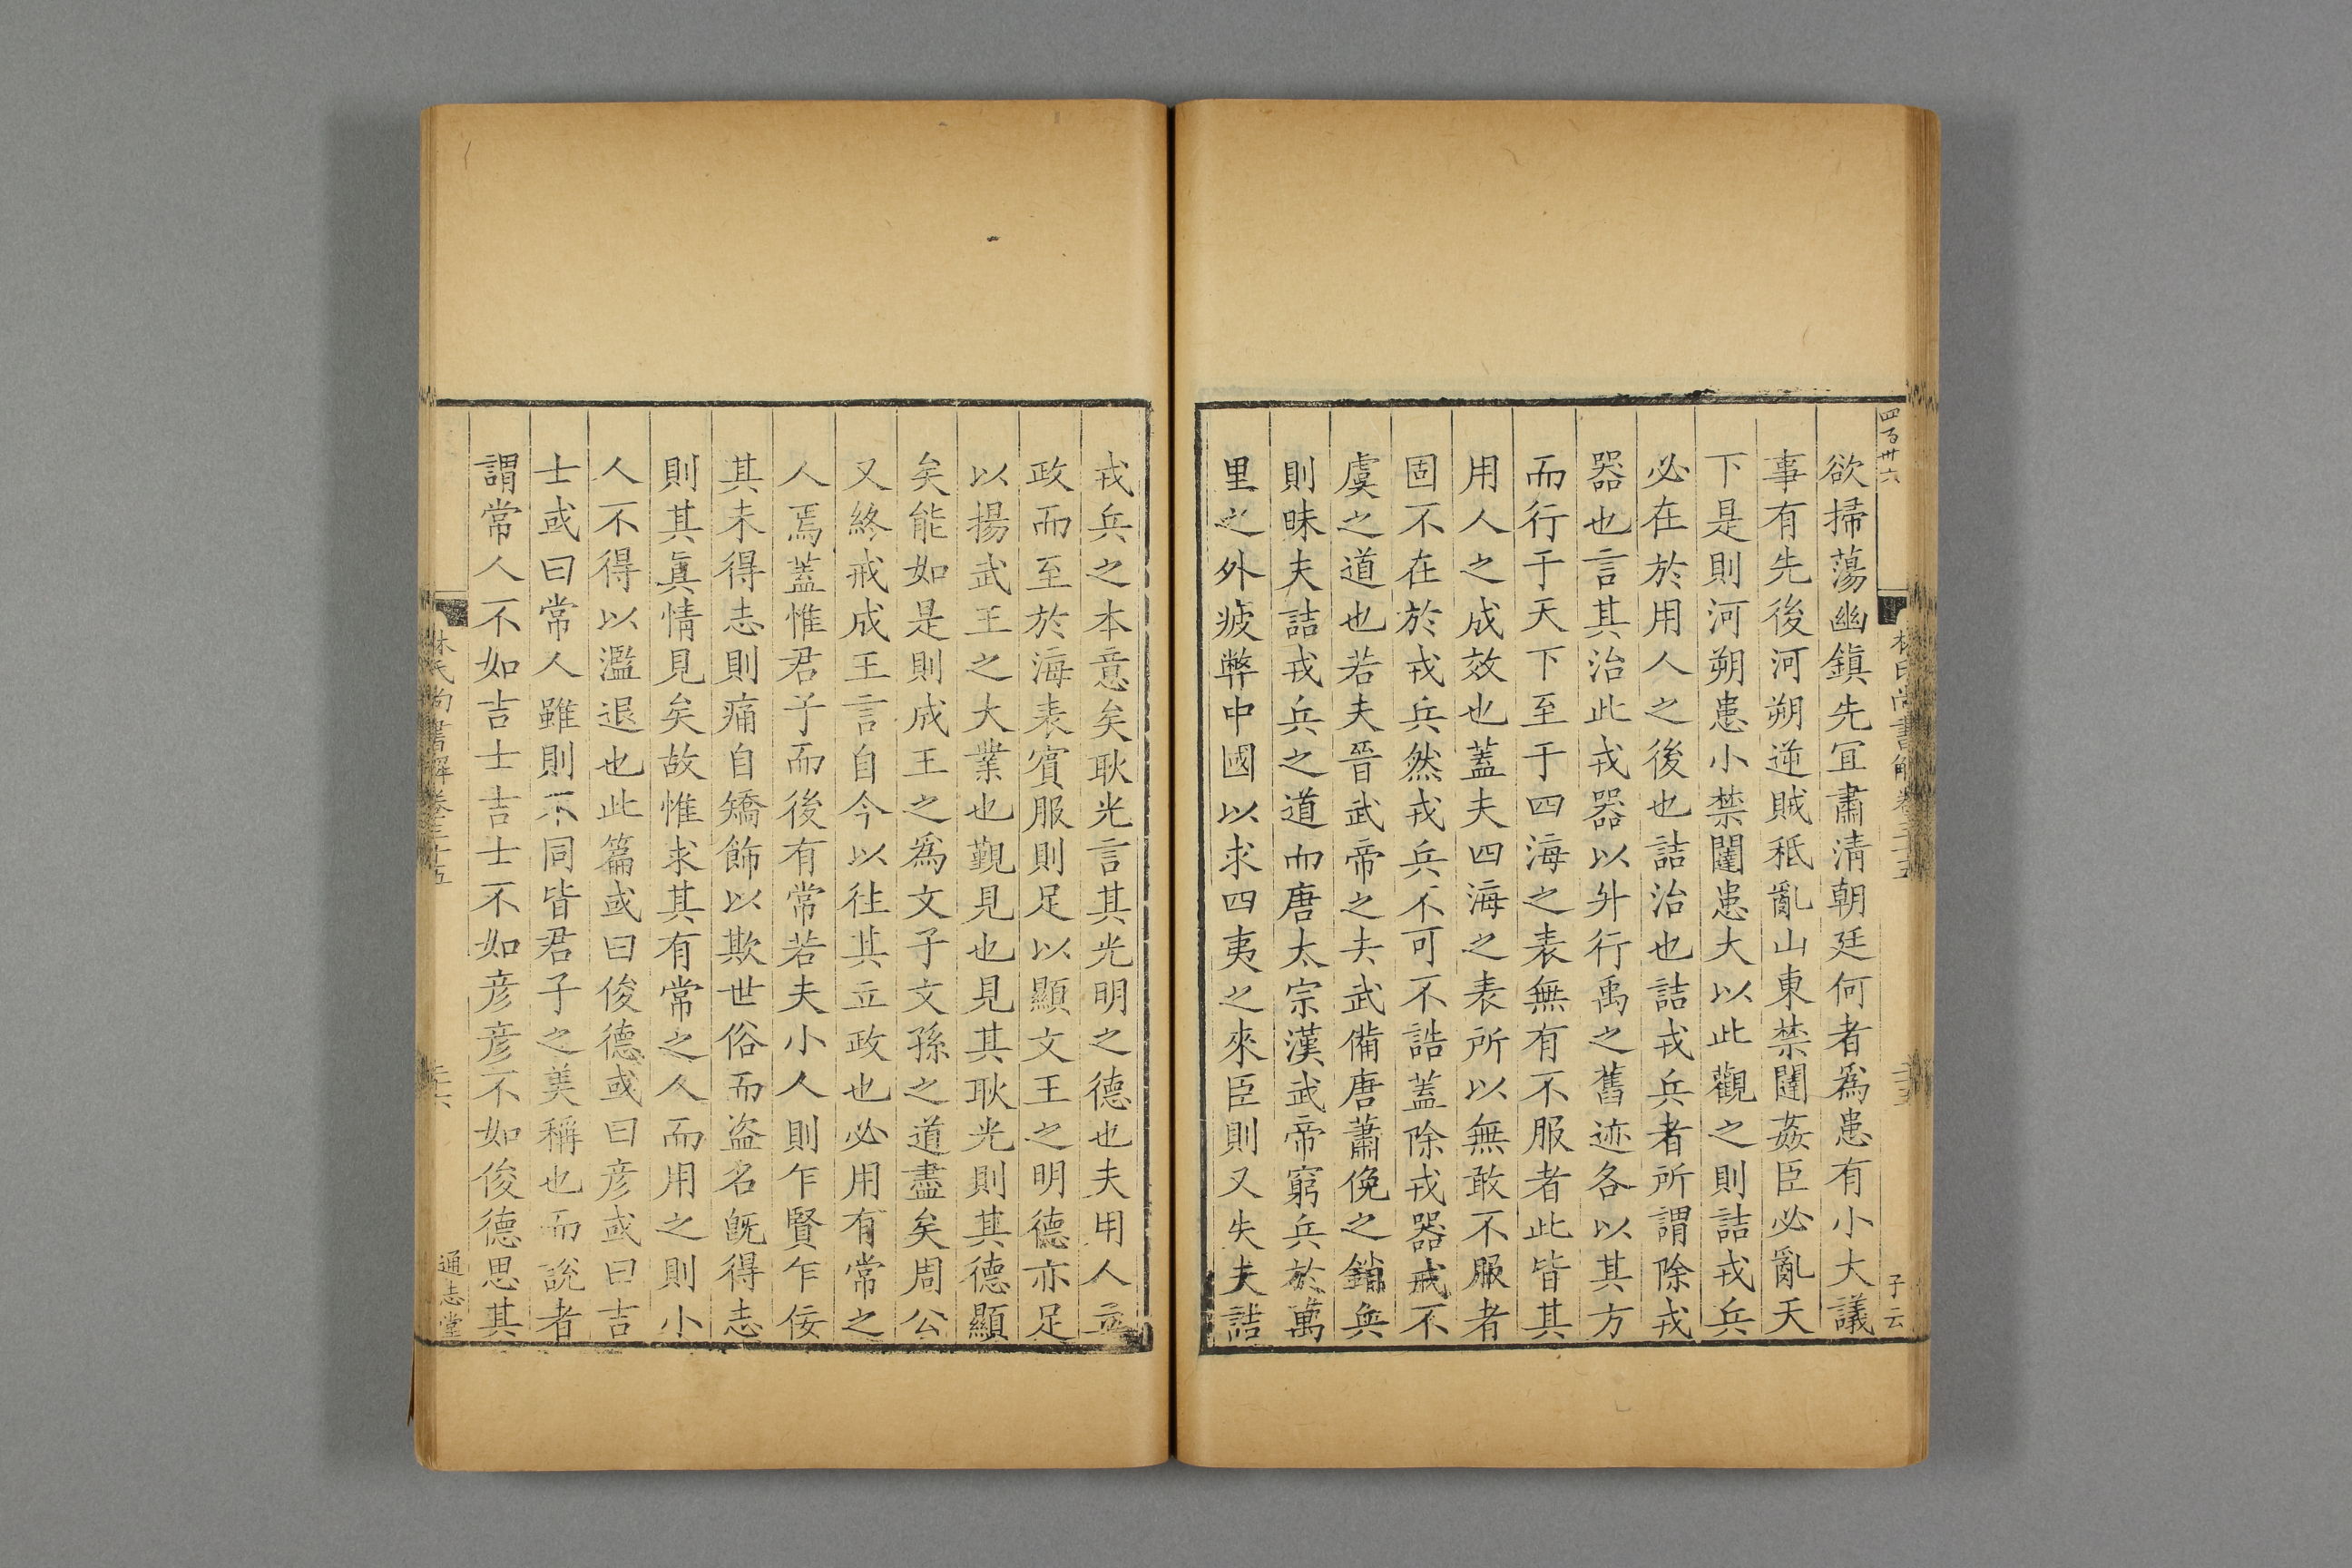 四百卅六
子云
欲掃蕩幽鎮先宜肅清朝廷何者為患有小大議
事有先後河朔逆賊秪亂山東禁闥姦臣必亂天
下是則河朔患小禁闥患大以此觀之則詰戎兵
必在於用人之後也詰治也詰戎兵者所謂除戎
器也言其治此戎器以升行禹之舊迹各以其方
而行于天下至于四海之表無有不服者此皆其
用人之成效也蓋夫四海之表所以無敢不服者
固不在於戎兵然戎兵不可不誥蓋除戎器戒不
虞之道也若夫晉武帝之去武備唐蕭俛之銷兵
則昧夫詰戎兵之道而唐太宗漢武帝窮兵於萬
里之外疲弊中國以求四夷之來臣則又失夫詰
戎兵之本意矣耿光言其光明之德也夫用人立
政而至於海表賓服則足以顯文王之明德亦足
以揚武王之大業也覲見也見其耿光則其德顯
矣能如是則成王之為文子文孫之道盡矣周公
又終戒成王言自今以往其立政也必用有常之
人焉蓋惟君子而後有常若夫小人則乍賢乍佞
其未得志則痛自矯飾以欺世俗而盜名既得志
則其真情見矣故惟求其有常之人而用之則小
人不得以濫退也此篇或曰俊德或曰彥或曰吉
士或曰常人雖則不同皆君子之美稱也而說者
謂常人不如吉士吉士不如彥彥不如俊德思其
林氏尚書解卷三十五
通志堂